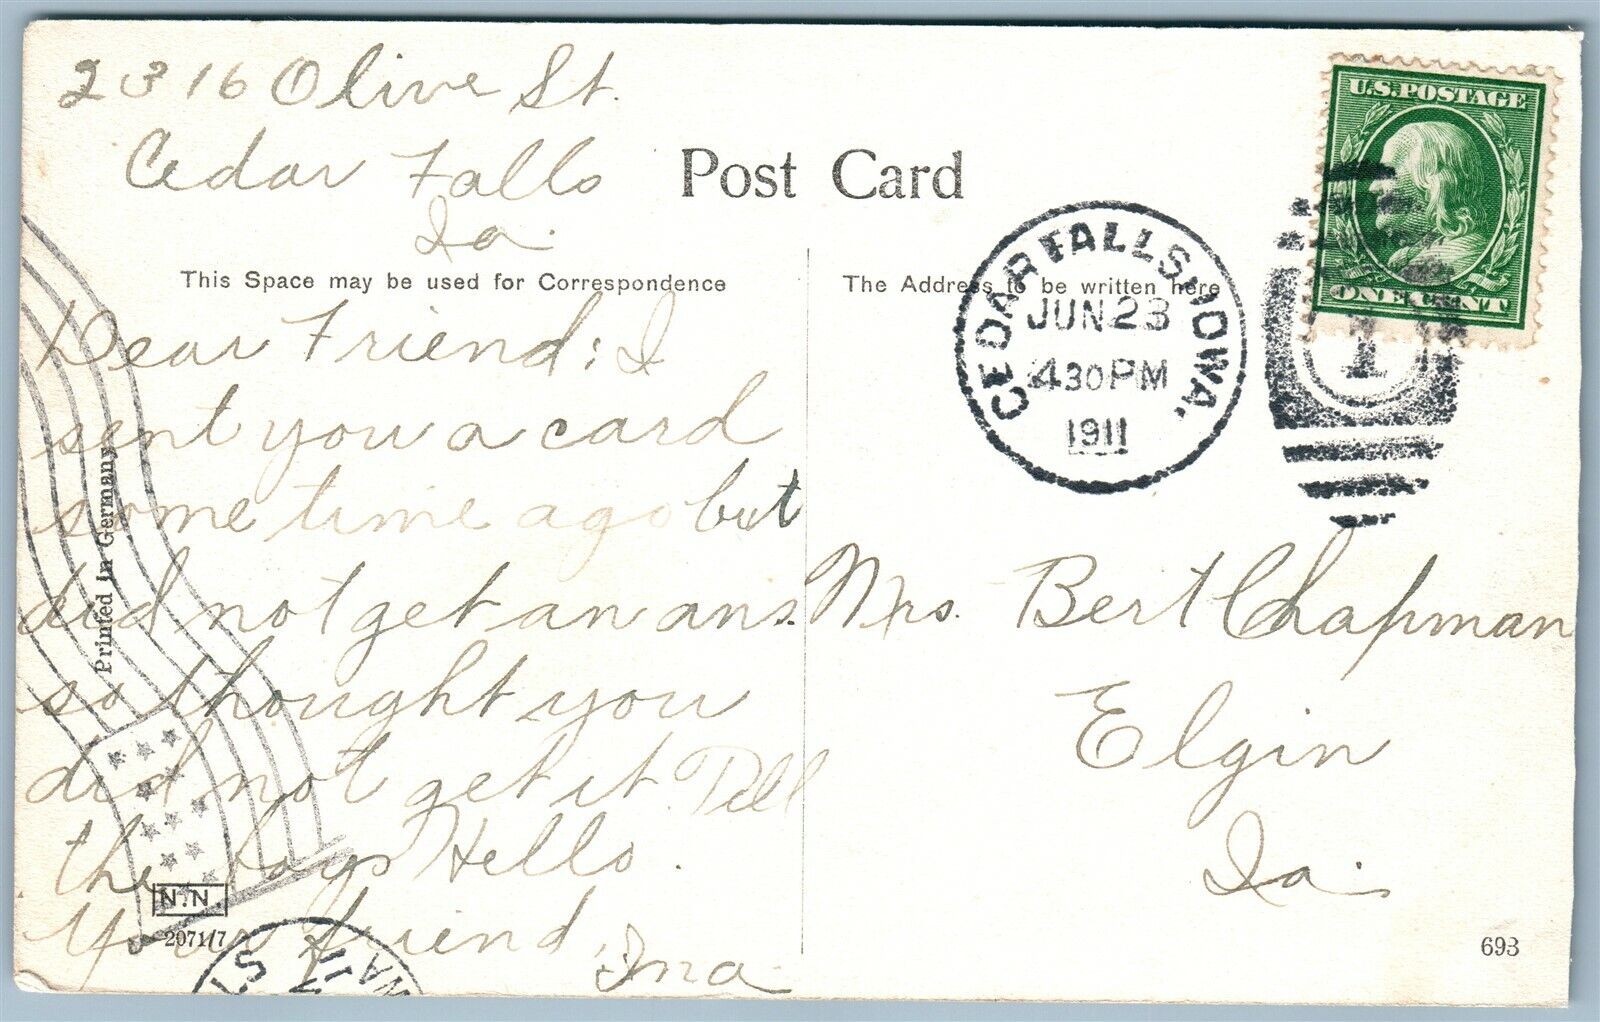 2316 Olive St.
Cedar Falls
Ia.
Post Card
This Space may be used for Correspondence
The Address to be written here
U.S. POSTAGE
ONE CENT
CEDAR FALLS, IOWA.
JUN 23
4 30 PM
1911
1
Dear Friend: I
sent you a card
some time ago but
did not get an ans.
so thought you
did not get it Tell
the boys Hello.
Your friend,
Ina.
Mrs. Bert Chapman
Elgin
Ia.
Printed in Germany
N.N.
2071/7
693